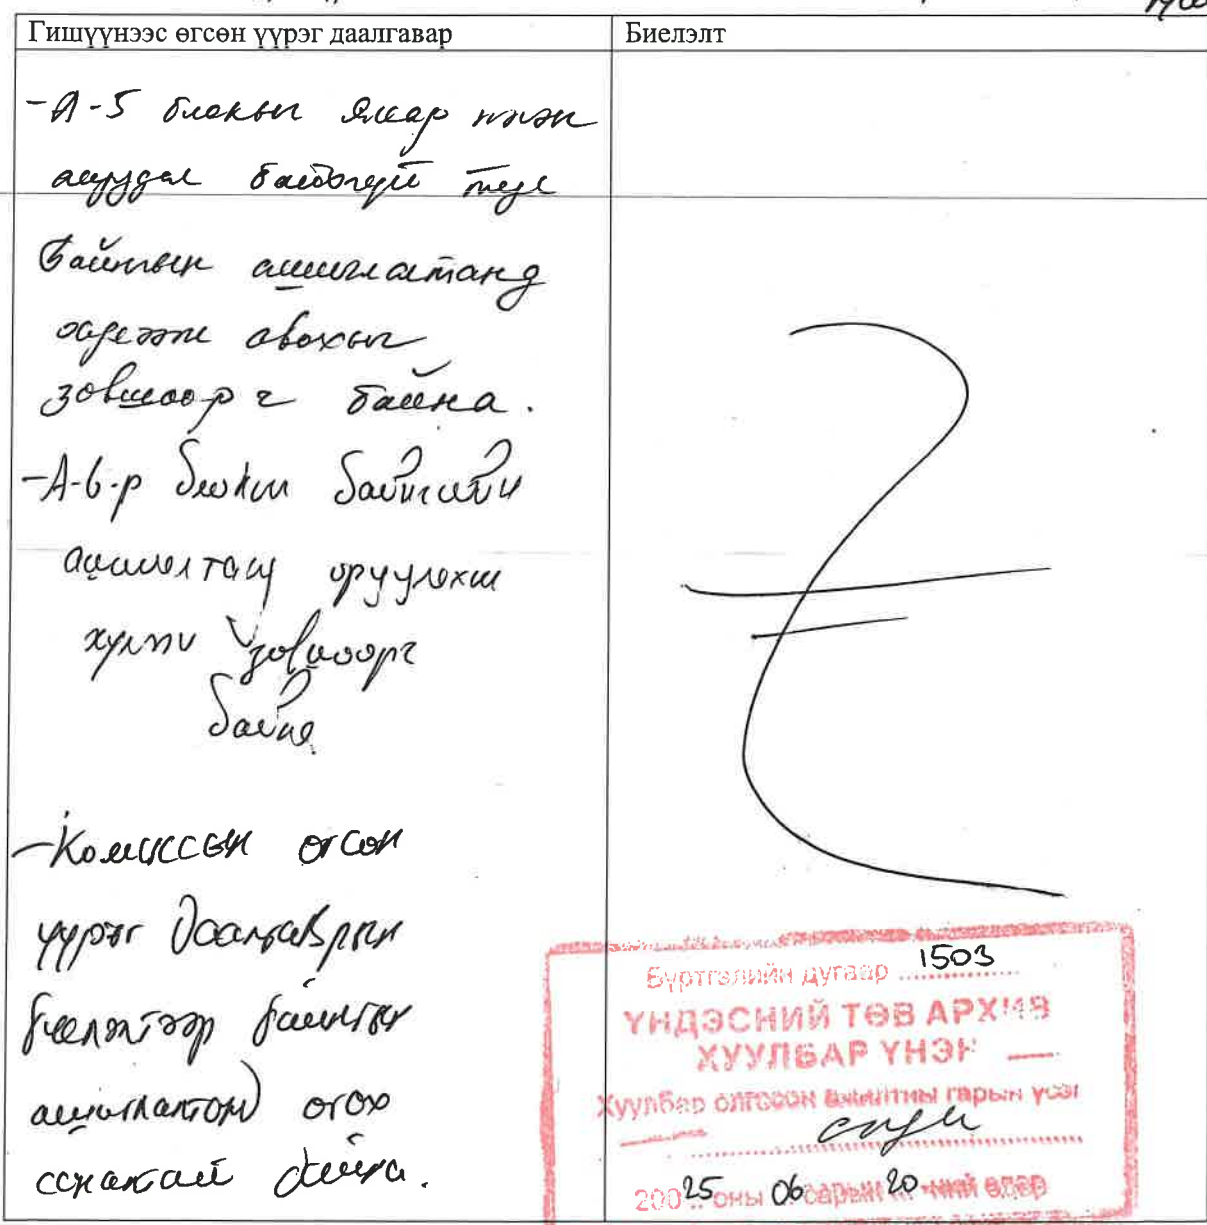 Гишүүнээс өгсөн үүрэг даалгавар
Биелэлт
-А-5 блокыг ямар нэгэн
асуудал байхгүй тул
байнгын ашиглалтанд
авахыг
зөвшөөрч байна.
-А-6-р блокыг байнгын
ашиглалтанд оруулахыг
зөвшөөрч
байна
-Комиссын өгсөн
үүрэг даалгаврын
биелэлтээр байнгын
ашиглалтонд өгөх
саналтай байна.
Бүртгэлийн дугаар 1503
ҮНДЭСНИЙ ТӨВ АРХИВ
ХУУЛБАР ҮНЭН
Хуулбар олгосон ажилтны гарын үсэг
200 25 оны 06 сарын 20 -ний өдөр